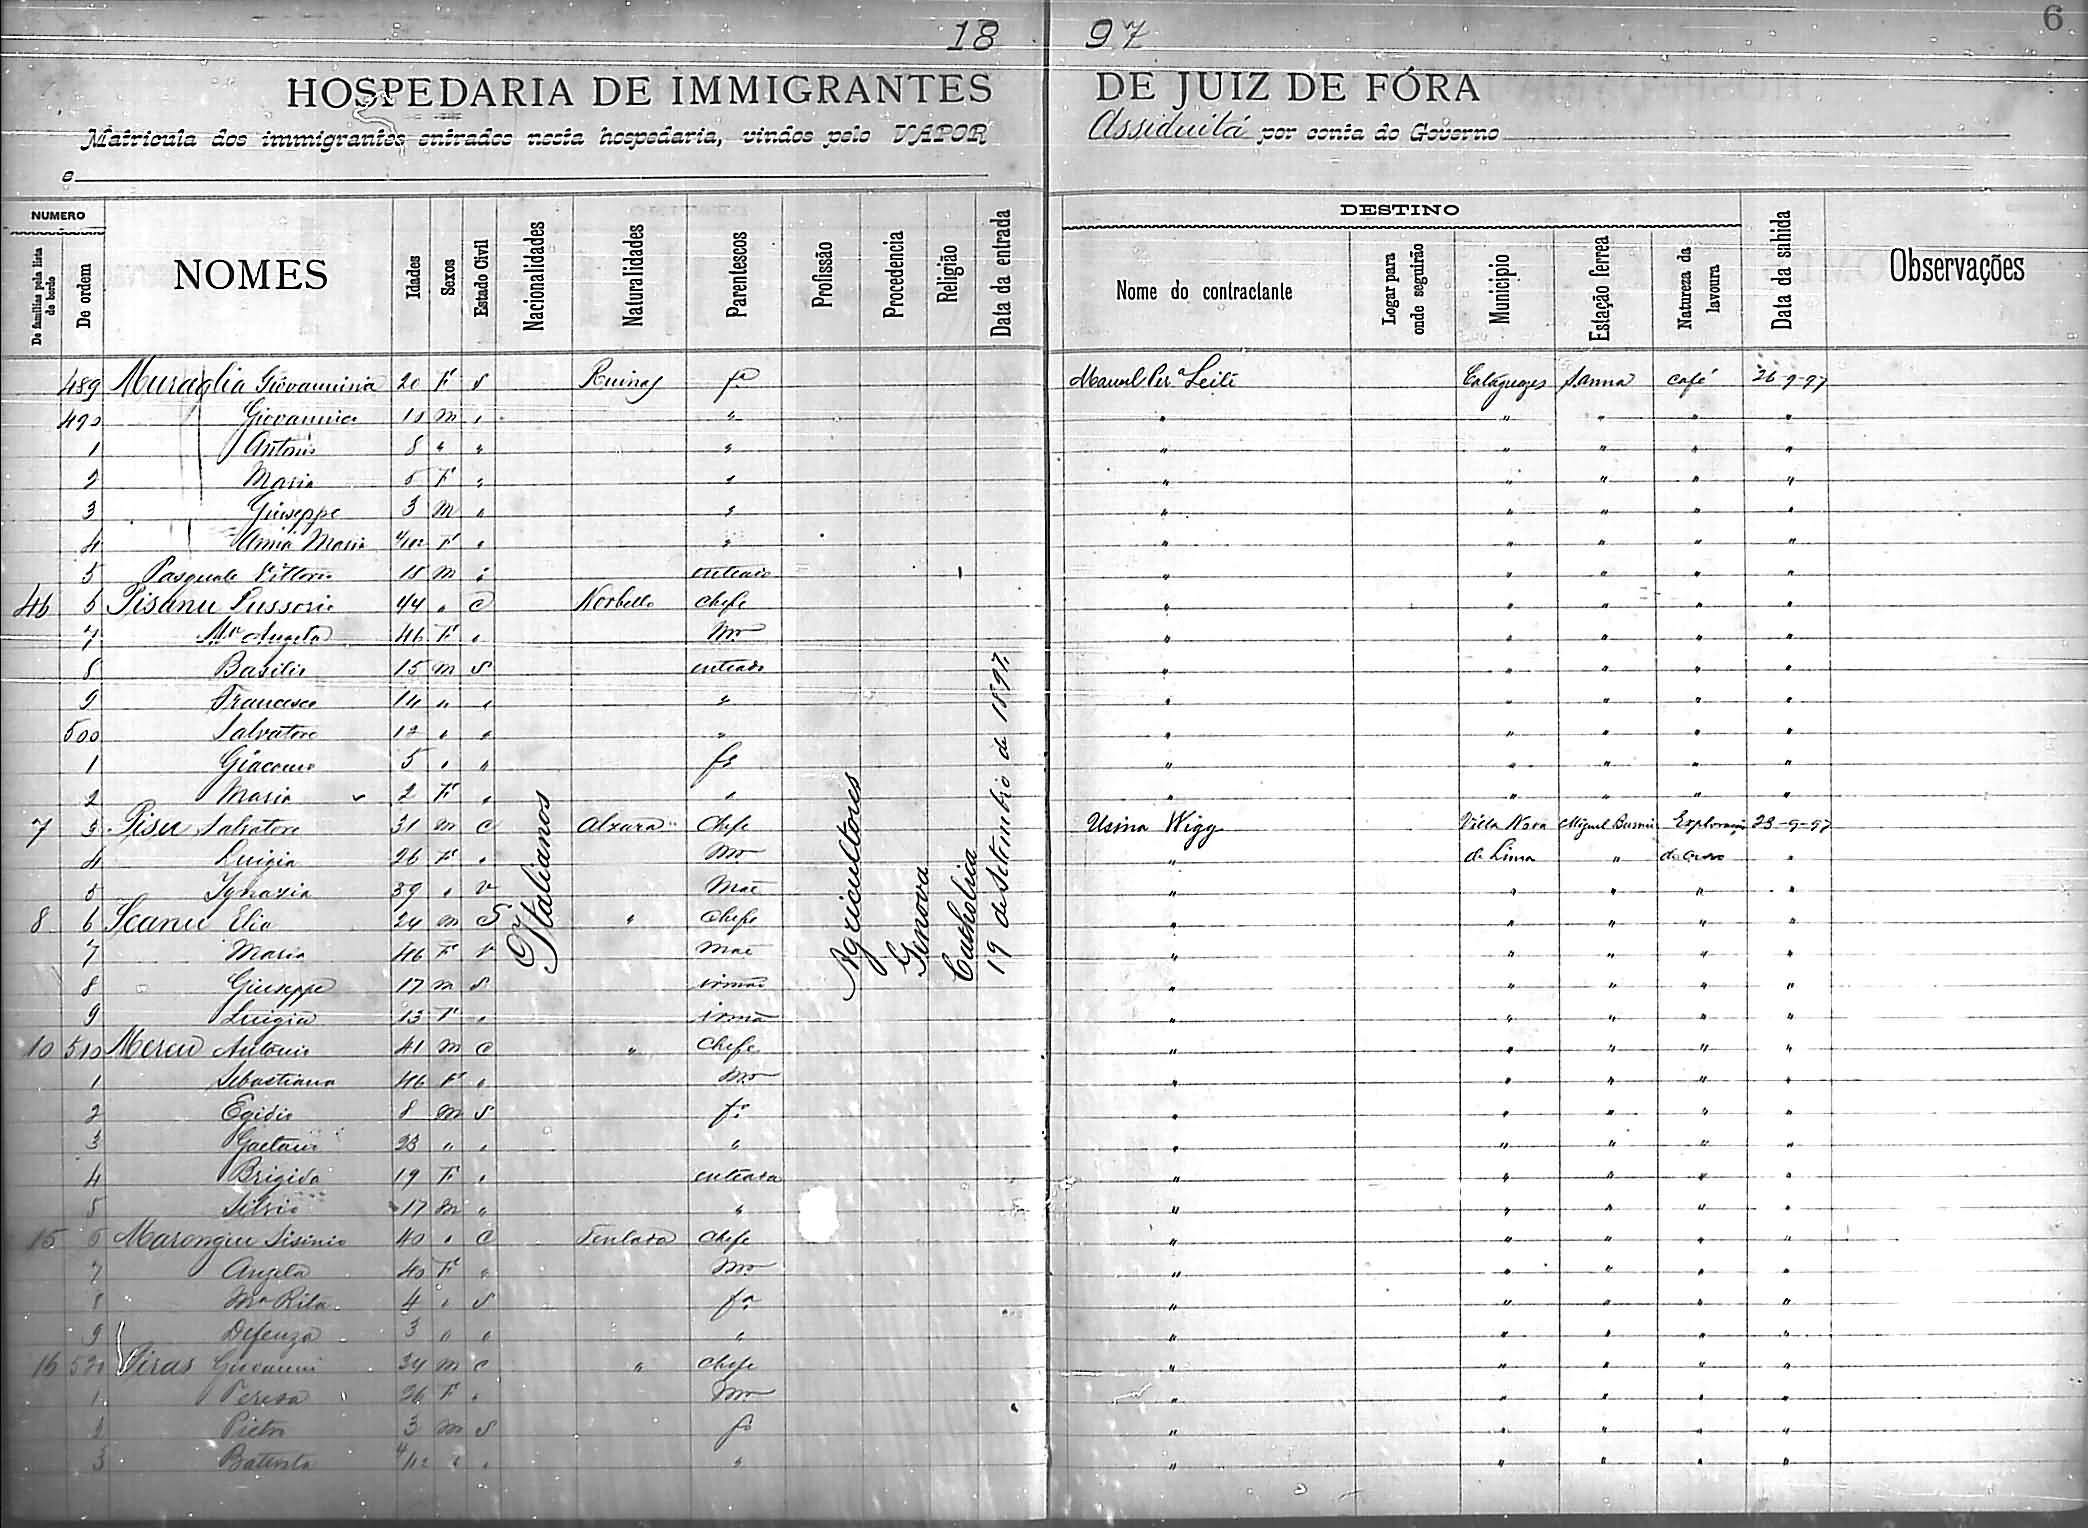 18 97
6
HOSPEDARIA DE IMMIGRANTES DE JUIZ DE FÓRA
Matricula dos immigrantes entrados nesta hospedaria, vindos pelo VAPOR Assiduitá por conta do Governo
e
NUMERO
DESTINO
De familias pela lista de bordo
De ordem
NOMES
Idades
Sexos
Estado Civil
Nacionalidades
Naturalidades
Parentescos
Profissão
Procedencia
Religião
Data da entrada
Nome do contractante
Logar para onde seguirão
Municipio
Estação ferrea
Natureza da lavoura
Data da subida
Observações
489 Muraglia Giovannina 20 F S Ruinas fa Manoel Per.a Leite Cataguazes Sanna café 26-9-97
490 m "
1 Antonio 8 " " "
2 Maria F " "
3 Giuseppe 3 m " "
4 Anna Maria F " "
5 Pasquale Vittorio 18 m enteado
46 6 Pisanu Lussorio 44 " C Norbello Chefe "
7 Ma Angela 46 F " Mer "
8 Basilio 15 m S enteado "
9 Francesco 14 " " " "
500 Salvatore 12 " " " "
1 Giacomo 5 " " fo "
2 Maria 2 F " " "
7 3 Pisu Salvatore 31 m C Chefe Usina Wigg Villa Nova Miguel Burnier 23-9-97
4 Luigia 26 F " Mer " de Lima " de ouro "
5 Ignazia 39 " v Mãe "
8 6 Scanu Elia 24 m S " Chefe "
7 Maria 46 F v Mãe "
8 Giuseppe 17 m S irmão "
9 Luigia 13 F " irmã "
10 510 Mereu Antonio 41 m C " Chefe "
1 Sebastiana 46 F " Mer "
2 Egidio 8 m S fo "
3 Gaetano 23 " " " "
4 Brigida 19 F " enteada "
5 Silvio 17 m " " "
15 6 Marongiu Sisinio 40 " C Teulada Chefe "
7 Angela 40 F " Mer "
8 Ma Rita 4 " S fa "
9 Defenza 3 " " " "
16 520 Piras Giovanni 34 m C " Chefe "
1 Teresa 26 F " Mer "
2 Pietro 3 m S fo "
3 Battista 4/12 " " " "
Italianos
Agricultores
Genova
Catholica
19 de Setembro de 1897